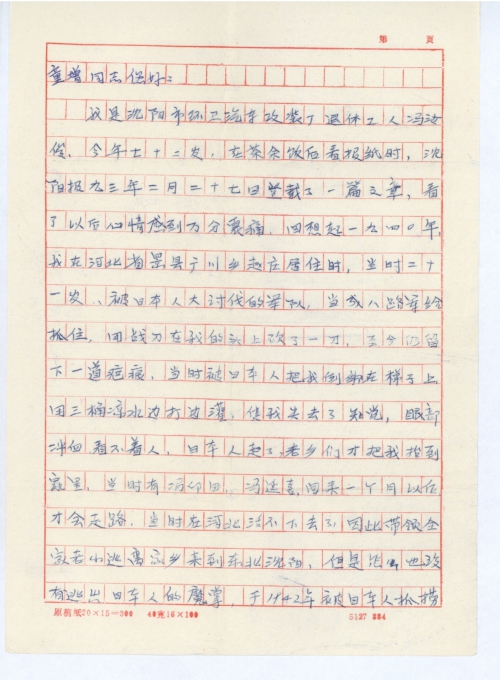 第 页
童增同志您好:
我是沈阳市环卫汽车改装厂退休工人冯汝
俊,今年七十二岁,在茶余饭后看报纸时,沈
阳报九三年二月二十七日登载了一篇文章,看
了以后心情感到万分哀痛,回想起一九四〇年,
我在河北省景县于川乡赵庄居住时,当时二十
一岁,被日本人大讨伐的军队,当成八路军给
抓住,用战刀在我的头上砍了一刀,至今仍留
下一道疤痕,当时被日本人把我倒绑在梯子上
用三桶凉水边打边灌,使我失去了知觉,眼部
冲血看不着人,日本人走了,老乡们才把我抬到
家里,当时有冯 田,冯廷喜,回来一个月以后
才会走路,当时在河北活不下去了,因此带领全
家老小逃离家乡来到东北沈阳,但是 也没
有逃出日本人的魔掌,于1942年被日本人抓捞
原稿纸20×15=300 40克16×100 5127 384